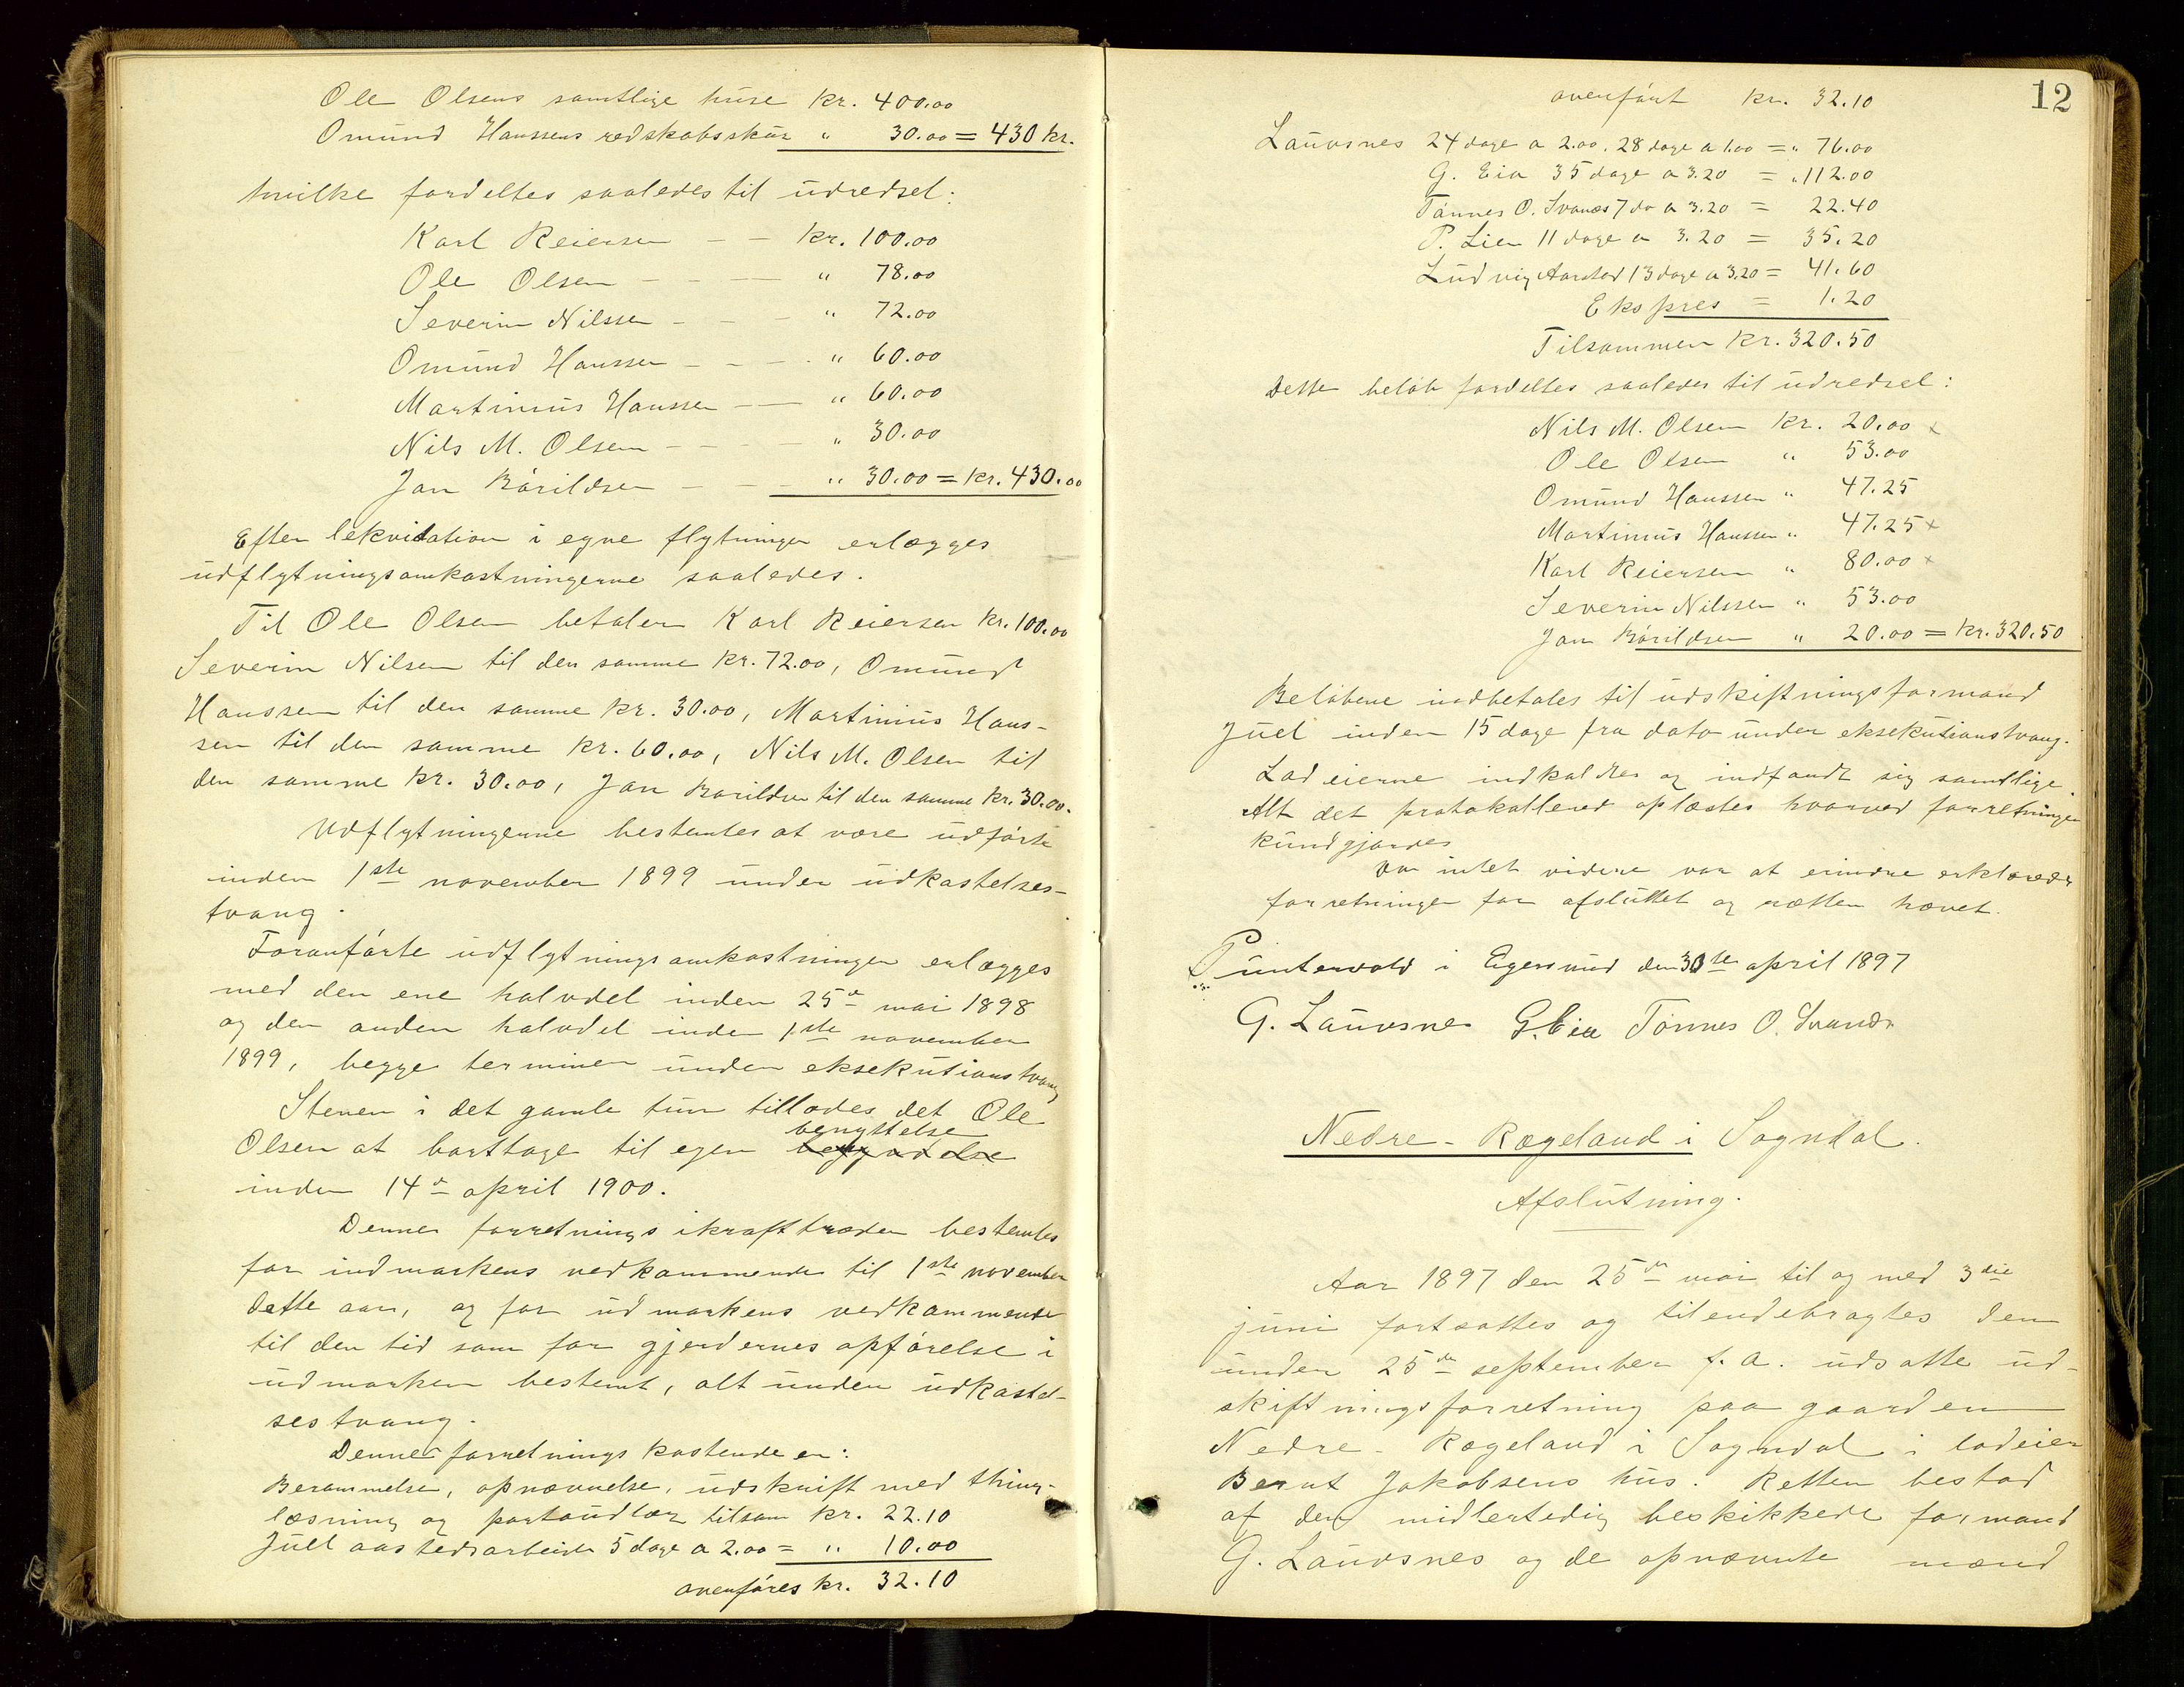 Ole Olsens samtlige huse kr. 400.00
Omund Hanssens redskabsskur " 30.00 = 430 kr.
hvilke fordeltes saaledes til udredsel:
Karl Reiersen – – kr. 100.00
Ole Olsen – – – " 78.00
Severin Nilssen – – – " 72.00
Omund Hanssen – – – " 60.00
Martinius Hanssen – – " 60.00
Nils M. Olsen – – – " 30.00
Jan Bårildsen – – – " 30.00 = kr. 430.00
Efter lekvidation i egne flytninger erlægges
udflytningsomkostningerne saaledes.
Til Ole Olsen betaler Karl Reiersen kr. 100.00
Severin Nilsen til den samme kr. 72.00, Omund
Hanssen til den samme kr. 30.00, Martinius Hans-
sen til den samme kr. 60.00, Nils M. Olsen til
den samme kr. 30.00, Jan Barildsen til den samme kr. 30.00.
Udflytningerne bestemtes at være udførte
inden 1ste november 1899 under udkastelses-
tvang.
Foranførte udflytningsomkostninger erlægges
med den ene halvdel inden 25de mai 1898
og den anden halvdel inden 1ste november
1899, begge terminer under eksekutionstvang
Stenen i det gamle tun tillodes det Ole
Olsen at borttage til egen benyttelse
inden 14de april 1900.
Denne forretnings ikrafttræden bestemtes
for indmarkens vedkommende til 1ste november
dette aar, og for udmarkens vedkommende
til den tid som for gjerdernes opførelse i
udmarken bestemt, alt under udkastel-
sestvang.
Denne forretnings kostende er:
Berammelse, opnævnelse, udskrift med thing-
læsning og portoudlæg tilsam kr. 22.10
Juel aastedsarbeide 5 dage a 2.00 = " 10.00
overføres kr. 32.10
12
overført kr. 32.10
Lauvsnes 24 dage a 2.00, 28 dage a 1.00 = " 76.00
G. Eia 35 dage a 3.20 = " 112.00
Tønnes O. Svanes 7 do a 3.20 = 22.40
P. Lien 11 dage a 3.20 = 35.20
Ludvig Aarstad 13 dage a 3.20 = 41.60
Ekspres = 1.20
Tilsammen kr. 320.50
Dette beløb fordeltes saaledes til udredsel:
Nils M. Olsen kr. 20.00 x
Ole Olsen " 53.00
Omund Hanssen " 47.25
Martinius Hanssen " 47.25 x
Karl Reiersen " 80.00 x
Severin Nilssen " 53.00
Jan Bårildsen " 20.00 = kr. 320.50
Beløbene indbetales til udskiftningsformand
Juel inden 15 dage fra dato under eksekutionstvang.
Lodeierne indkaldtes og indfandt sig samtlige.
Alt det protokollered oplæstes hvorved forretningen
kundgjordes
Da intet videre var at erindre erklæredes
forretningen for afsluttet og rætten hævet.
Puntervold i Egersund den 30te april 1897
G. Lauvsnes G. Eia Tønnes O. Svanes
Nedre-Rægeland i Sogndal.
Afslutning.
Aar 1897 den 25de mai til og med 3die
juni fortsattes og tilendebragtes den
under 25de september f. a. udsatte ud-
skiftningsforretning paa gaarden
Nedre-Rægeland i Sogndal i lodeier
Bernt Jakobsens hus. Retten bestod
af den midlertidig beskikkede formand
G. Lauvsnes og de opnævnte mænd